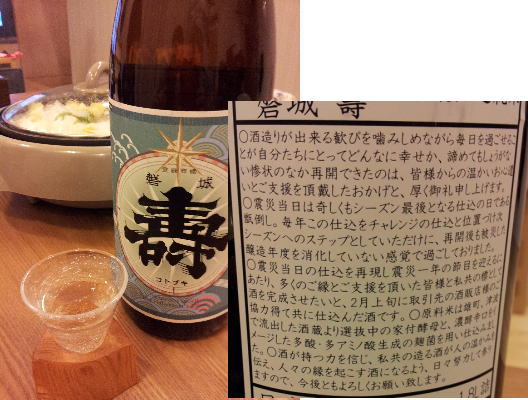 登録商標
磐城
壽
コトブキ
磐城 壽
○酒造りが出来る歓びを噛みしめながら毎日を過ごせるこ
とが自分たちにとってどんなに幸せか、諦めてもしょうがな
い惨状のなか再開できたのは、皆様からの温かいお心遣
いとご支援を頂戴したおかげと、厚く御礼申し上げます。
○震災当日は奇しくもシーズン最後となる仕込の日である
甑倒し。毎年この仕込をチャレンジの仕込と位置づけ次
シーズンへのステップとしていただけに、再開後も被災した
醸造年度を消化していない感覚で過ごしておりました。
○震災当日の仕込を再現し震災一年の節目を迎えるに
あたり、多くのご縁とご支援を頂いた皆様と私共の標として
酒を完成させたいと、2月上旬に取引先の酒販店様のご
協力得て共に仕込んだ酒です。○原料米は雄町、津波
で流出した酒蔵より選抜中の家付酵母と、濃醇辛口をイ
メージした多酸・多アミノ酸生成の麹菌を用い仕込みまし
た。○酒が持つ力を信じ、私共の造る酒が人の温かみを
伝え、人々の縁を起こす酒になるよう、日々努力して参り
ますので、今後ともよろしくお願い致します。
1.8L詰